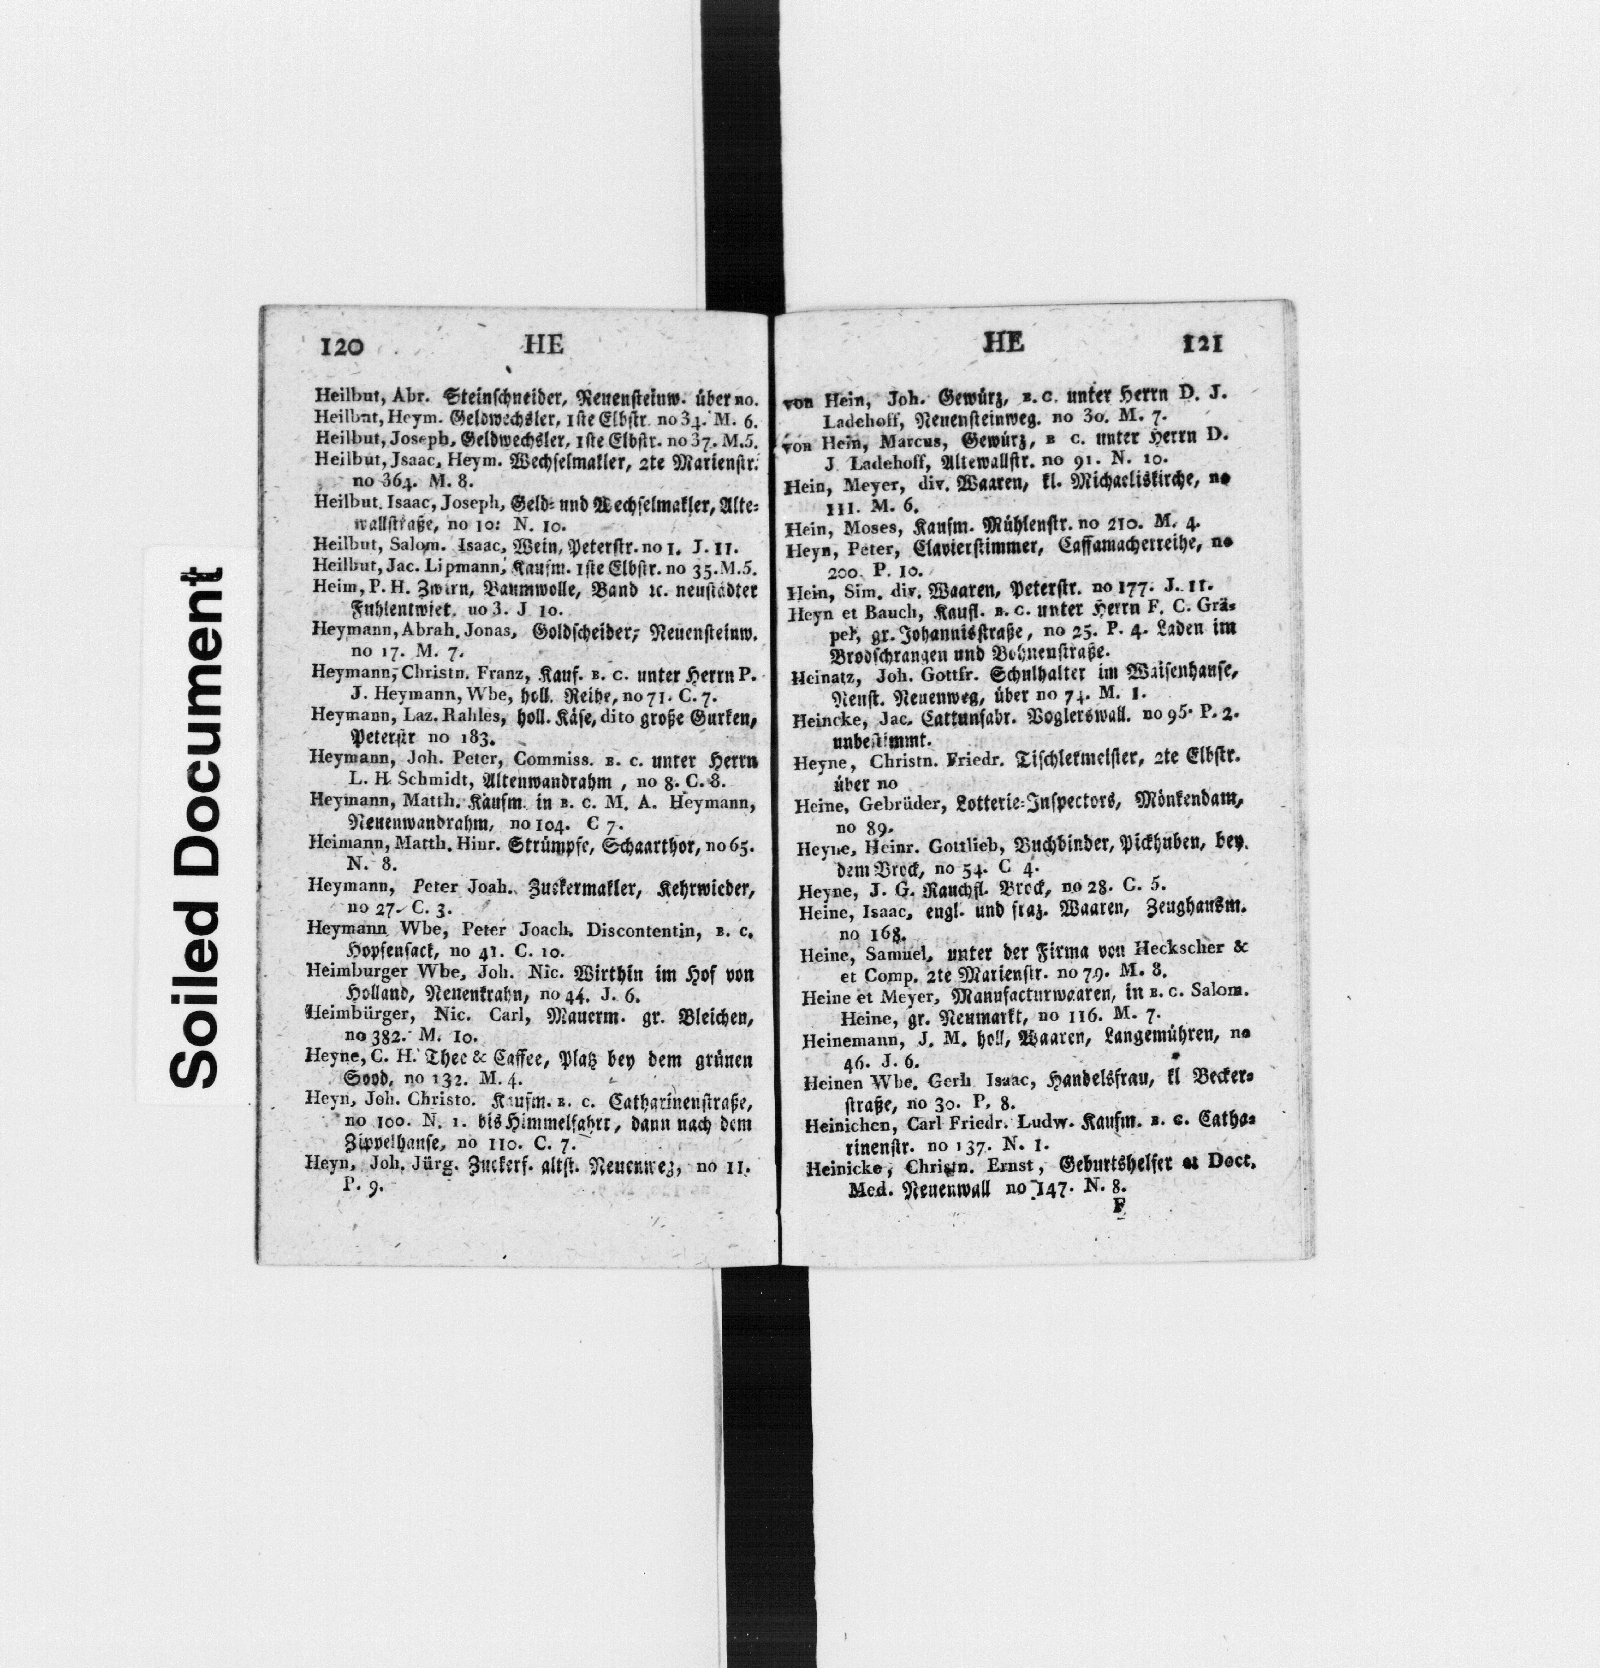 Soiled Document
120 HE
Heilbut, Abr. Steinschneider, Neuensteinw. über no.
Heilbut, Heym. Geldwechsler, 1ste Elbstr. no 34. M. 6.
Heilbut, Joseph, Geldwechsler, 1ste Elbstr. no 37. M. 5.
Heilbut, Jsaac, Heym. Wechselmakler, 2te Marienstr.
no 364. M. 8.
Heilbut, Isaac, Joseph, Geld- und Wechselmakler, Alte-
wallstraße, no 10: N. 10.
Heilbut, Salom. Isaac, Wein, Peterstr. no 1. J. 11.
Heilbut, Jac. Lipmann, Kaufm. 1ste Elbstr. no 35. M. 5.
Heim, P. H. Zwirn, Baumwolle, Band ꝛc. neustädter
Fuhlentwiet. uo 3. J 10.
Heymann, Abrah. Jonas, Goldscheider, Neuensteinw.
no 17. M. 7.
Heymann, Christn. Franz, Kauf. B. C. unter Herrn P.
J. Heymann, Wbe, holl. Reihe, no 71. C. 7.
Heymann, Laz. Rahles, holl. Käse, dito große Gurken,
Peterstr no 183.
Heymann, Joh. Peter, Commiss. B. C. unter Herrn
L. H. Schmidt, Altenwandrahm, no 8. C. 8.
Heymann, Matth. Kaufm. in B. C. M. A. Heymann,
Neuenwandrahm, no 104. C 7.
Heimann, Matth. Hinr. Strümpfe, Schaarthor, no 65.
N. 8.
Heymann, Peter Joah. Zuckermakler, Kehrwieder,
no 27. C. 3.
Heymann Wbe, Peter Joach. Discontentin, B. C.
Hopfensack, no 41. C. 10.
Heimburger Wbe, Joh. Nic. Wirthin im Hof von
Holland, Neuenkrahn, no 44. J. 6.
Heimbürger, Nic. Carl, Mauerm. gr. Bleichen,
no 382. M. 10.
Heyne, C. H. Thee & Caffee, Platz bey dem grünen
Sood, no 132. M. 4.
Heyn, Joh. Christo. Kaufm. B. C. Catharinenstraße,
no 100. N. 1. bis Himmelfahrt, dann nach dem
Zippelhause, no 110. C. 7.
Heyn, Joh. Jürg. Zuckerf. altst. Neuenweg, no 11.
P. 9.
HE 121
von Hein, Joh. Gewürz, B. C. unter Herrn D. J.
Ladehoff, Neuensteinweg. no 30. M. 7.
von Hein, Marcus, Gewürz, B C. unter Herrn D.
J. Ladehoff, Altewallstr. no 91. N. 10.
Hein, Meyer, div. Waaren, kl. Michaeliskirche, no
111. M. 6.
Hein, Moses, Kaufm. Mühlenstr. no 210. M. 4.
Heyn, Peter, Clavierstimmer, Caffamacherreihe, no
200. P. 10.
Hein, Sim. div. Waaren, Peterstr. no 177. J. 11.
Heyn et Bauch, Kaufl. B. C. unter Herrn F. C. Grä-
pel, gr. Johannisstraße, no 25. P. 4. Laden im
Brodschrangen und Bohnenstraße.
Heinatz, Joh. Gottfr. Schulhalter im Waisenhause,
Neust. Neuenweg, über no 74. M. 1.
Heincke, Jac. Cattunfabr. Voglerswall. no 95. P. 2.
unbestimmt.
Heyne, Christn. Friedr. Tischlermeister, 2te Elbstr.
über no
Heine, Gebrüder, Lotterie-Inspectors, Mönkendam,
no 89.
Heyne, Heinr. Gottlieb, Buchbinder, Pickhuben, bey.
dem Brock, no 54. C 4.
Heyne, J. G. Rauchfl. Brock, no 28. C. 5.
Heine, Isaac, engl. und fraz. Waaren, Zeughausm.
no 168.
Heine, Samuel, unter der Firma von Heckscher &
et Comp. 2te Marienstr. no 79. M. 8.
Heine et Meyer, Manufacturwaaren, in B. C. Salom.
Heine, gr. Neumarkt, no 116. M. 7.
Heinemann, J. M. holl, Waaren, Langemühren, no
46. J. 6.
Heinen Wbe. Gerh Isaac, Handelsfrau, kl Becker-
straße, no 30. P. 8.
Heinichen, Carl Friedr. Ludw. Kaufm. B. C. Catha-
rinenstr. no 137. N. 1.
Heinicke, Christn. Ernst, Geburtshelfer et Doct.
Med. Neuenwall no 147. N. 8.
F